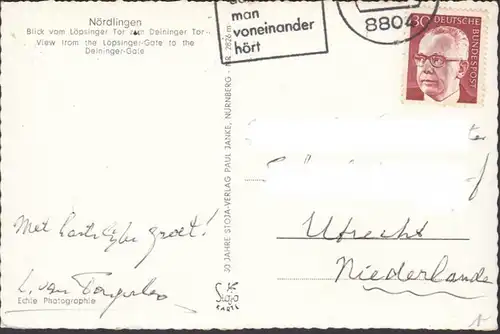 Nördlingen
Blick vom Löpsinger Tor zum Deininger Tor
View from the Löpsinger-Gate to the
Deininger-Gate
man
voneinander
hört
8804
80
DEUTSCHE
BUNDESPOST
30 JAHRE STOJA-VERLAG PAUL JANKE, NÜRNBERG - NR. 2826 m
Met hartelijke groet!
L. van
Utrecht
Niederlande
Echte Photographie